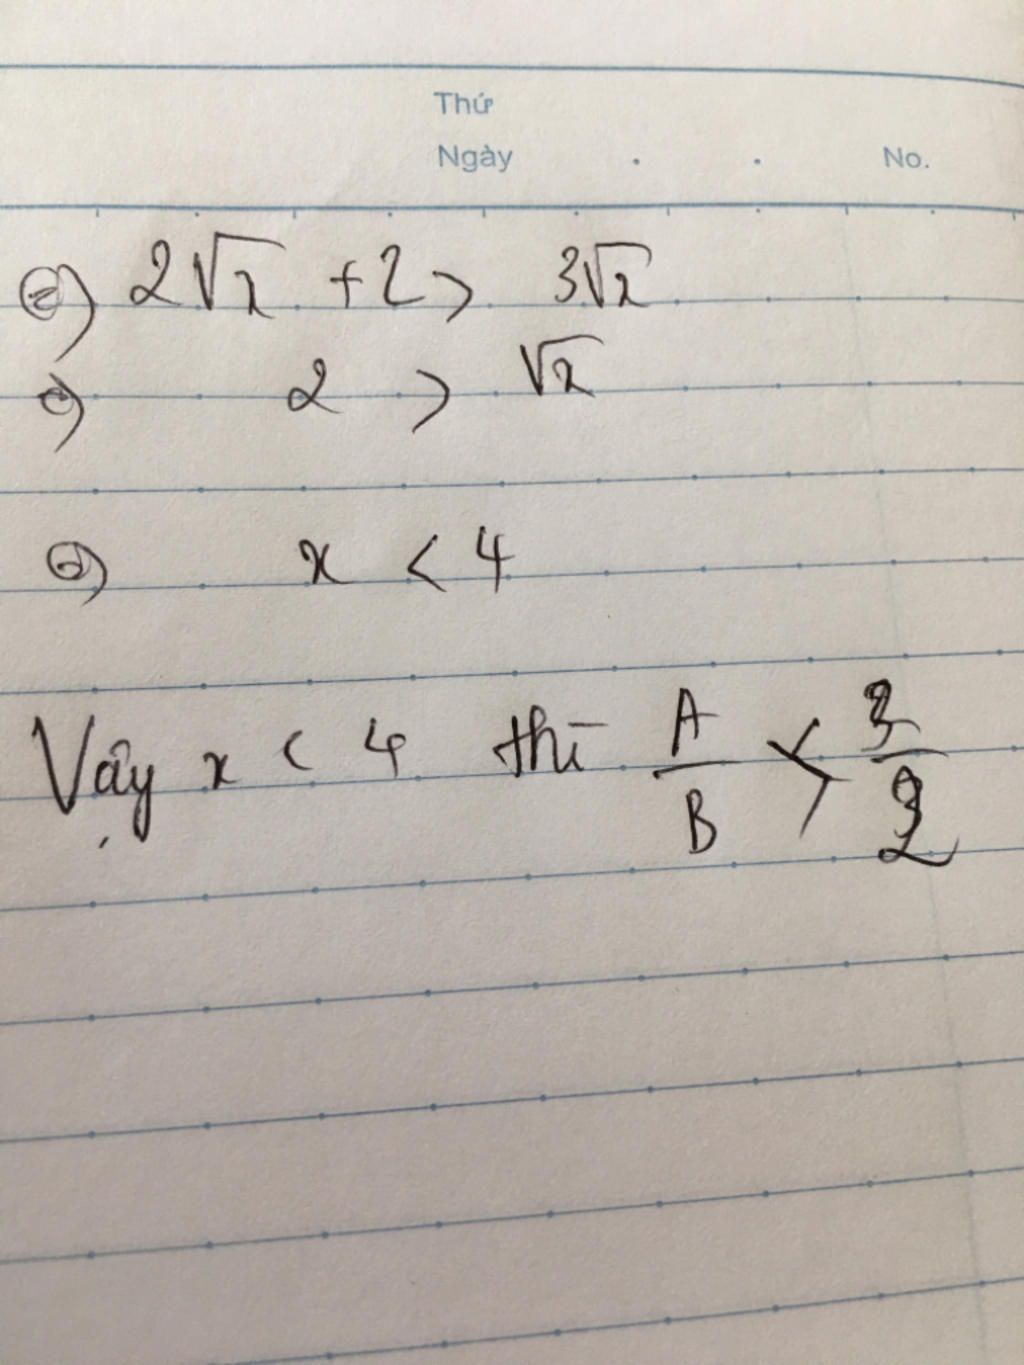 Thứ
Ngày . . No.
⇔) 2√x + 2 > 3√x
⇔) 2 > √x
⇔) x < 4
Vậy x < 4 thì A/B > 3/2